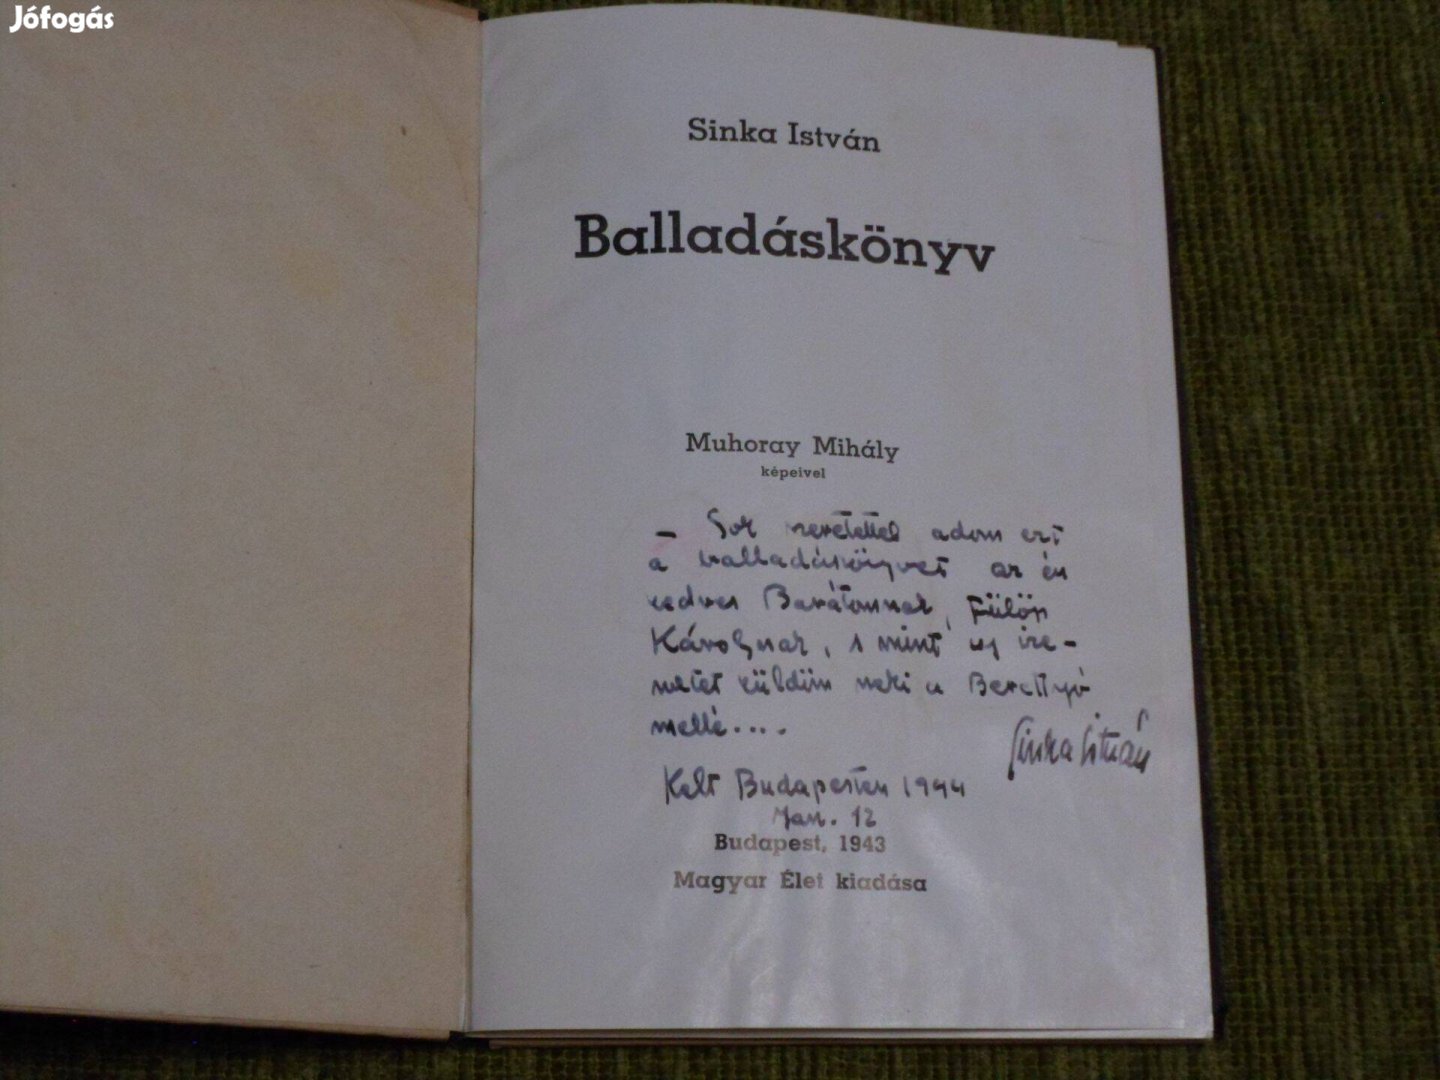 Jófogás
Sinka István
Balladáskönyv
Muhoray Mihály
képeivel
– Sok szeretettel adom ezt
a balladáskönyvet az én
kedves Barátomnak, Fülöp
Károlynak, s mint egy üze-
netet küldöm neki a Berettyó
mellé....
Sinka István
Kelt Budapesten 1944
Jan. 12
Budapest, 1943
Magyar Élet kiadása